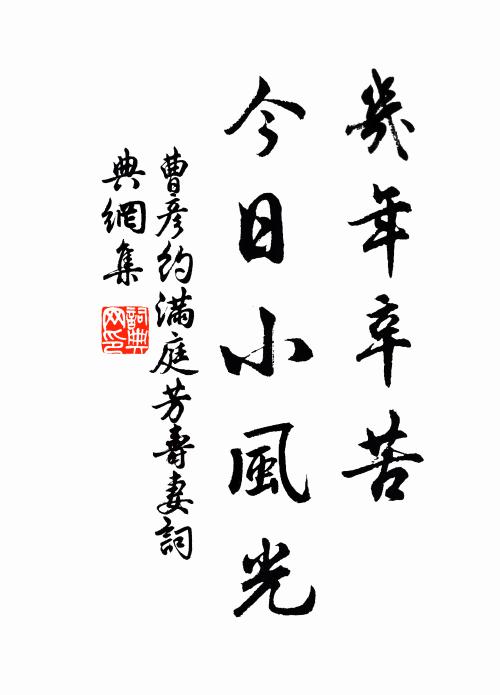 幾年辛苦
今日小風光
曹彥約滿庭芳壽妻詞
典網集
詞典網印